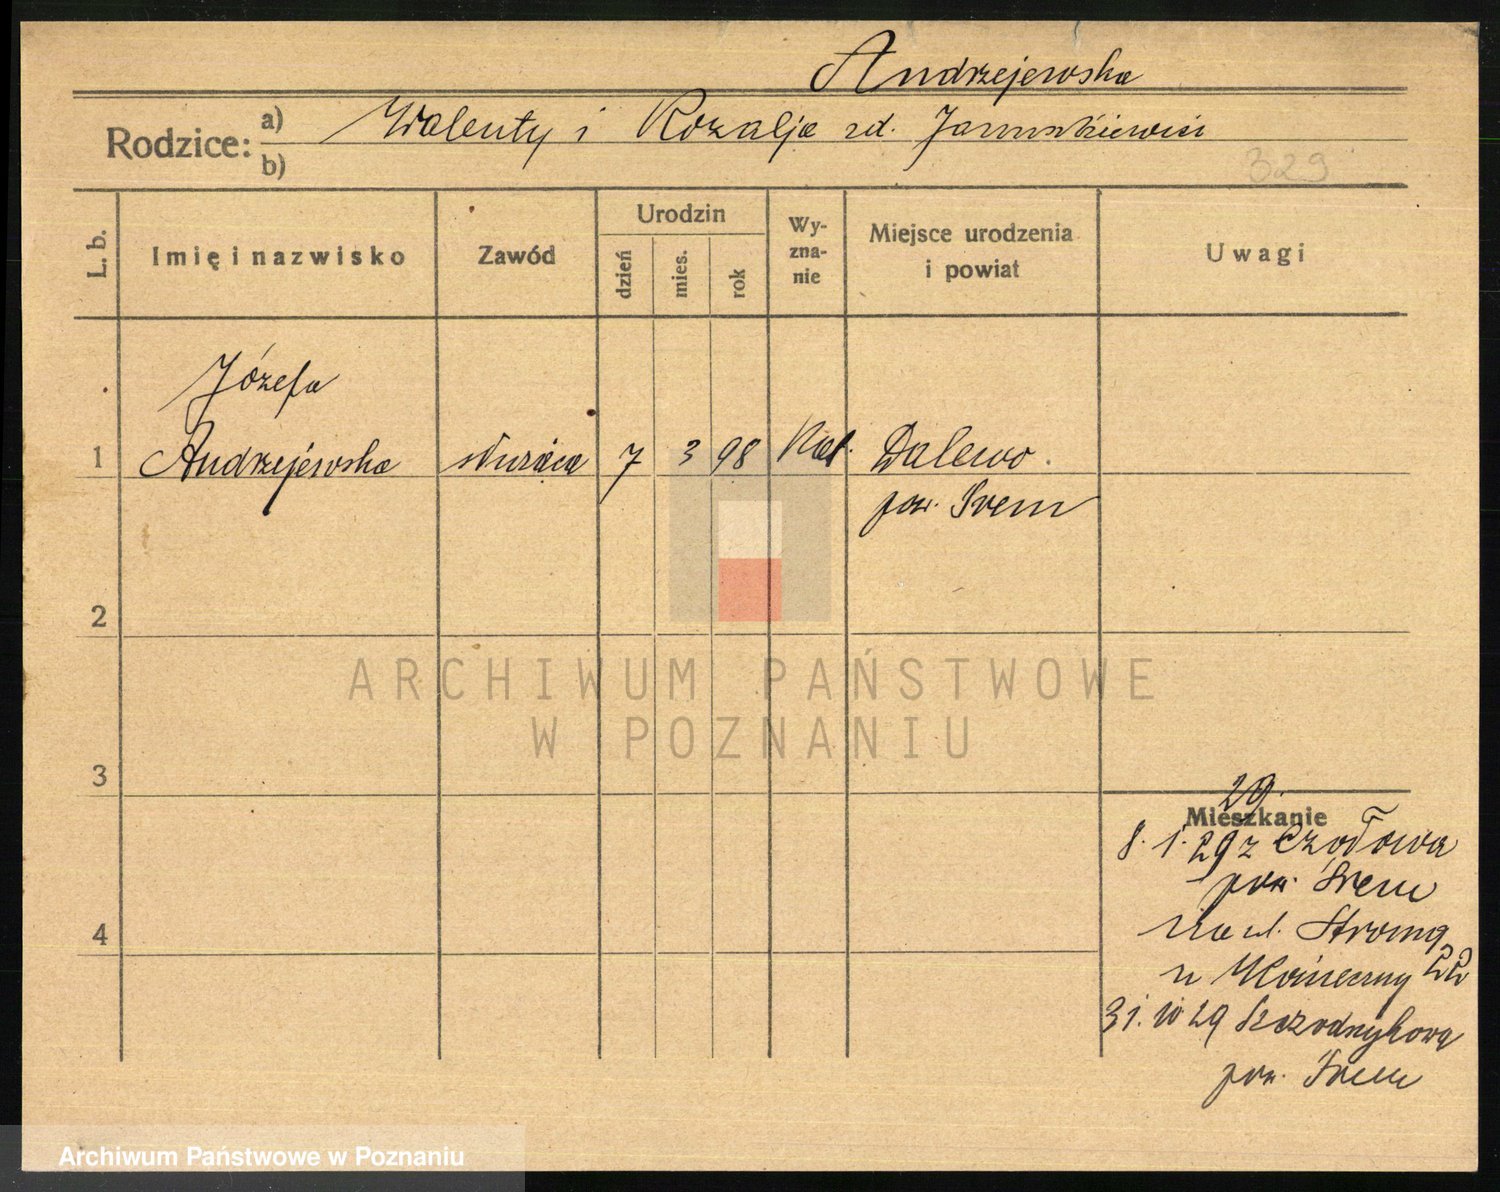 Andrzejewska
Rodzice: a) Walenty i Rozalja zd.
b)
329
L. b. Imię i nazwisko Zawód Urodzin dzień mies. rok Wy-zna-nie Miejsce urodzenia i powiat Uwagi
Józefa
1 Andrzejewska służąca 7 3 98 Kat. Dalewo
pow. Śrem
2
ARCHIWUM PAŃSTWOWE
W POZNANIU
3
29.
Mieszkanie
8. 1. 29 z
pow. Śrem
na ul. Stromą
u Konieczny 22
31. 29
pow. Śrem
4
Archiwum Państwowe w Poznaniu